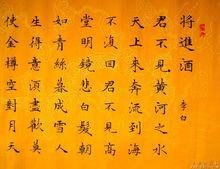 將進酒
李白
君不見黃河之水
天上來奔流到海
不復回君不見高
堂明鏡悲白髮朝
如青絲暮成雪人
生得意須盡歡莫
使金樽空對月天